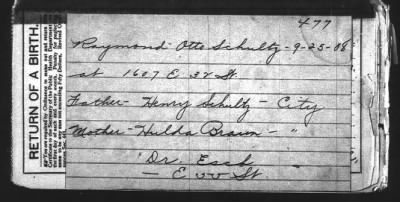 477
Raymond Otto Schultz - 9-25-08
at 1607 E. 32 St.
Father - Henry Schultz - City
Mother - Hulda Braun - "
Dr. Esch
- E 55 St
RETURN OF A BIRTH.